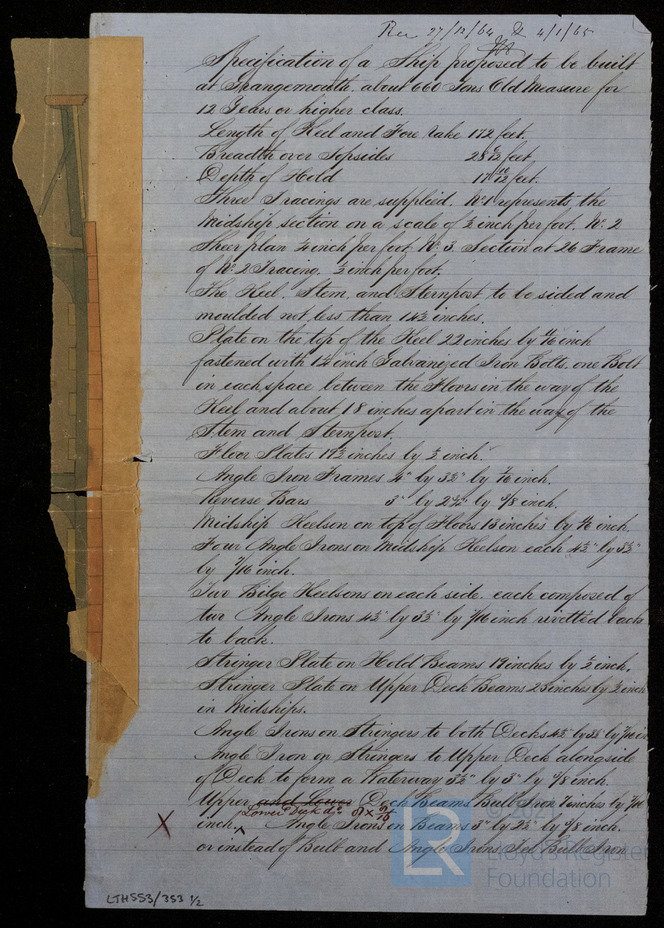 Rec 27/12/64 & 4/1/65
Specification of a Ship proposed to be built
at Grangemouth. about 660 Tons Old Measure for
12 Years or higher class.
Length of Keel and Fore rake 172 feet.
Breadth over Topsides 28 /12 feet
Depth of Hold 17 /12 feet.
Three Tracings are supplied. No 1 represents the
Midship section on a scale of ½ inch per foot. No 2
Sheer plan ¼ inch per foot. No 3. Section at 26 Frame
of No 2 Tracing. ½ inch per foot.
The Keel, Stem, and Sternpost to be sided and
moulded not less than 14½ inches.
Plate on the top of the Keel 22 inches by /16 inch
fastened with inch Galvanized Iron Bolts, one Bolt
in each space between the Floors in the way of the
Keel and about 18 inches apart in the way of the
Stem and Sternpost.
Floor Plates 19½ inches by ½ inch.
Angle Iron Frames 4" by 3½" by 7/16 inch.
Reverse Bars 3" by 2¾" by 3/8 inch.
Midship Keelson on top of Floors 13 inches by /16 inch.
Four Angle Irons on Midship Keelson each 4½" by 3½"
by 7/16 inch.
Two Bilge Keelsons on each side. each composed of
two Angle Irons 4½" by 3½" by 7/16 inch rivetted back
to back.
Stringer Plate on Hold Beams 19 inches by ½ inch.
Stringer Plate on Upper Deck Beams 23 inches by ½ inch
in Midships.
Angle Irons on Stringers to both Decks 4½" by 3½" by 7/16 in
Angle Iron on Stringers to Upper Deck alongside
of Deck to form a Waterway 3½" by 3" by 3/8 inch.
Upper and Lower Deck Beams Bulb Iron 7 inches by 7/16
Lower Deck do 8 x 9/16
X inch. ^ Angle Irons on Beams 3" by 2½" by 3/8 inch.
or instead of Bulb and Angle Irons Tee Bulb Iron
LTHSS3/353 1/2
LR
© 202
Lloyd's Register
Foundation